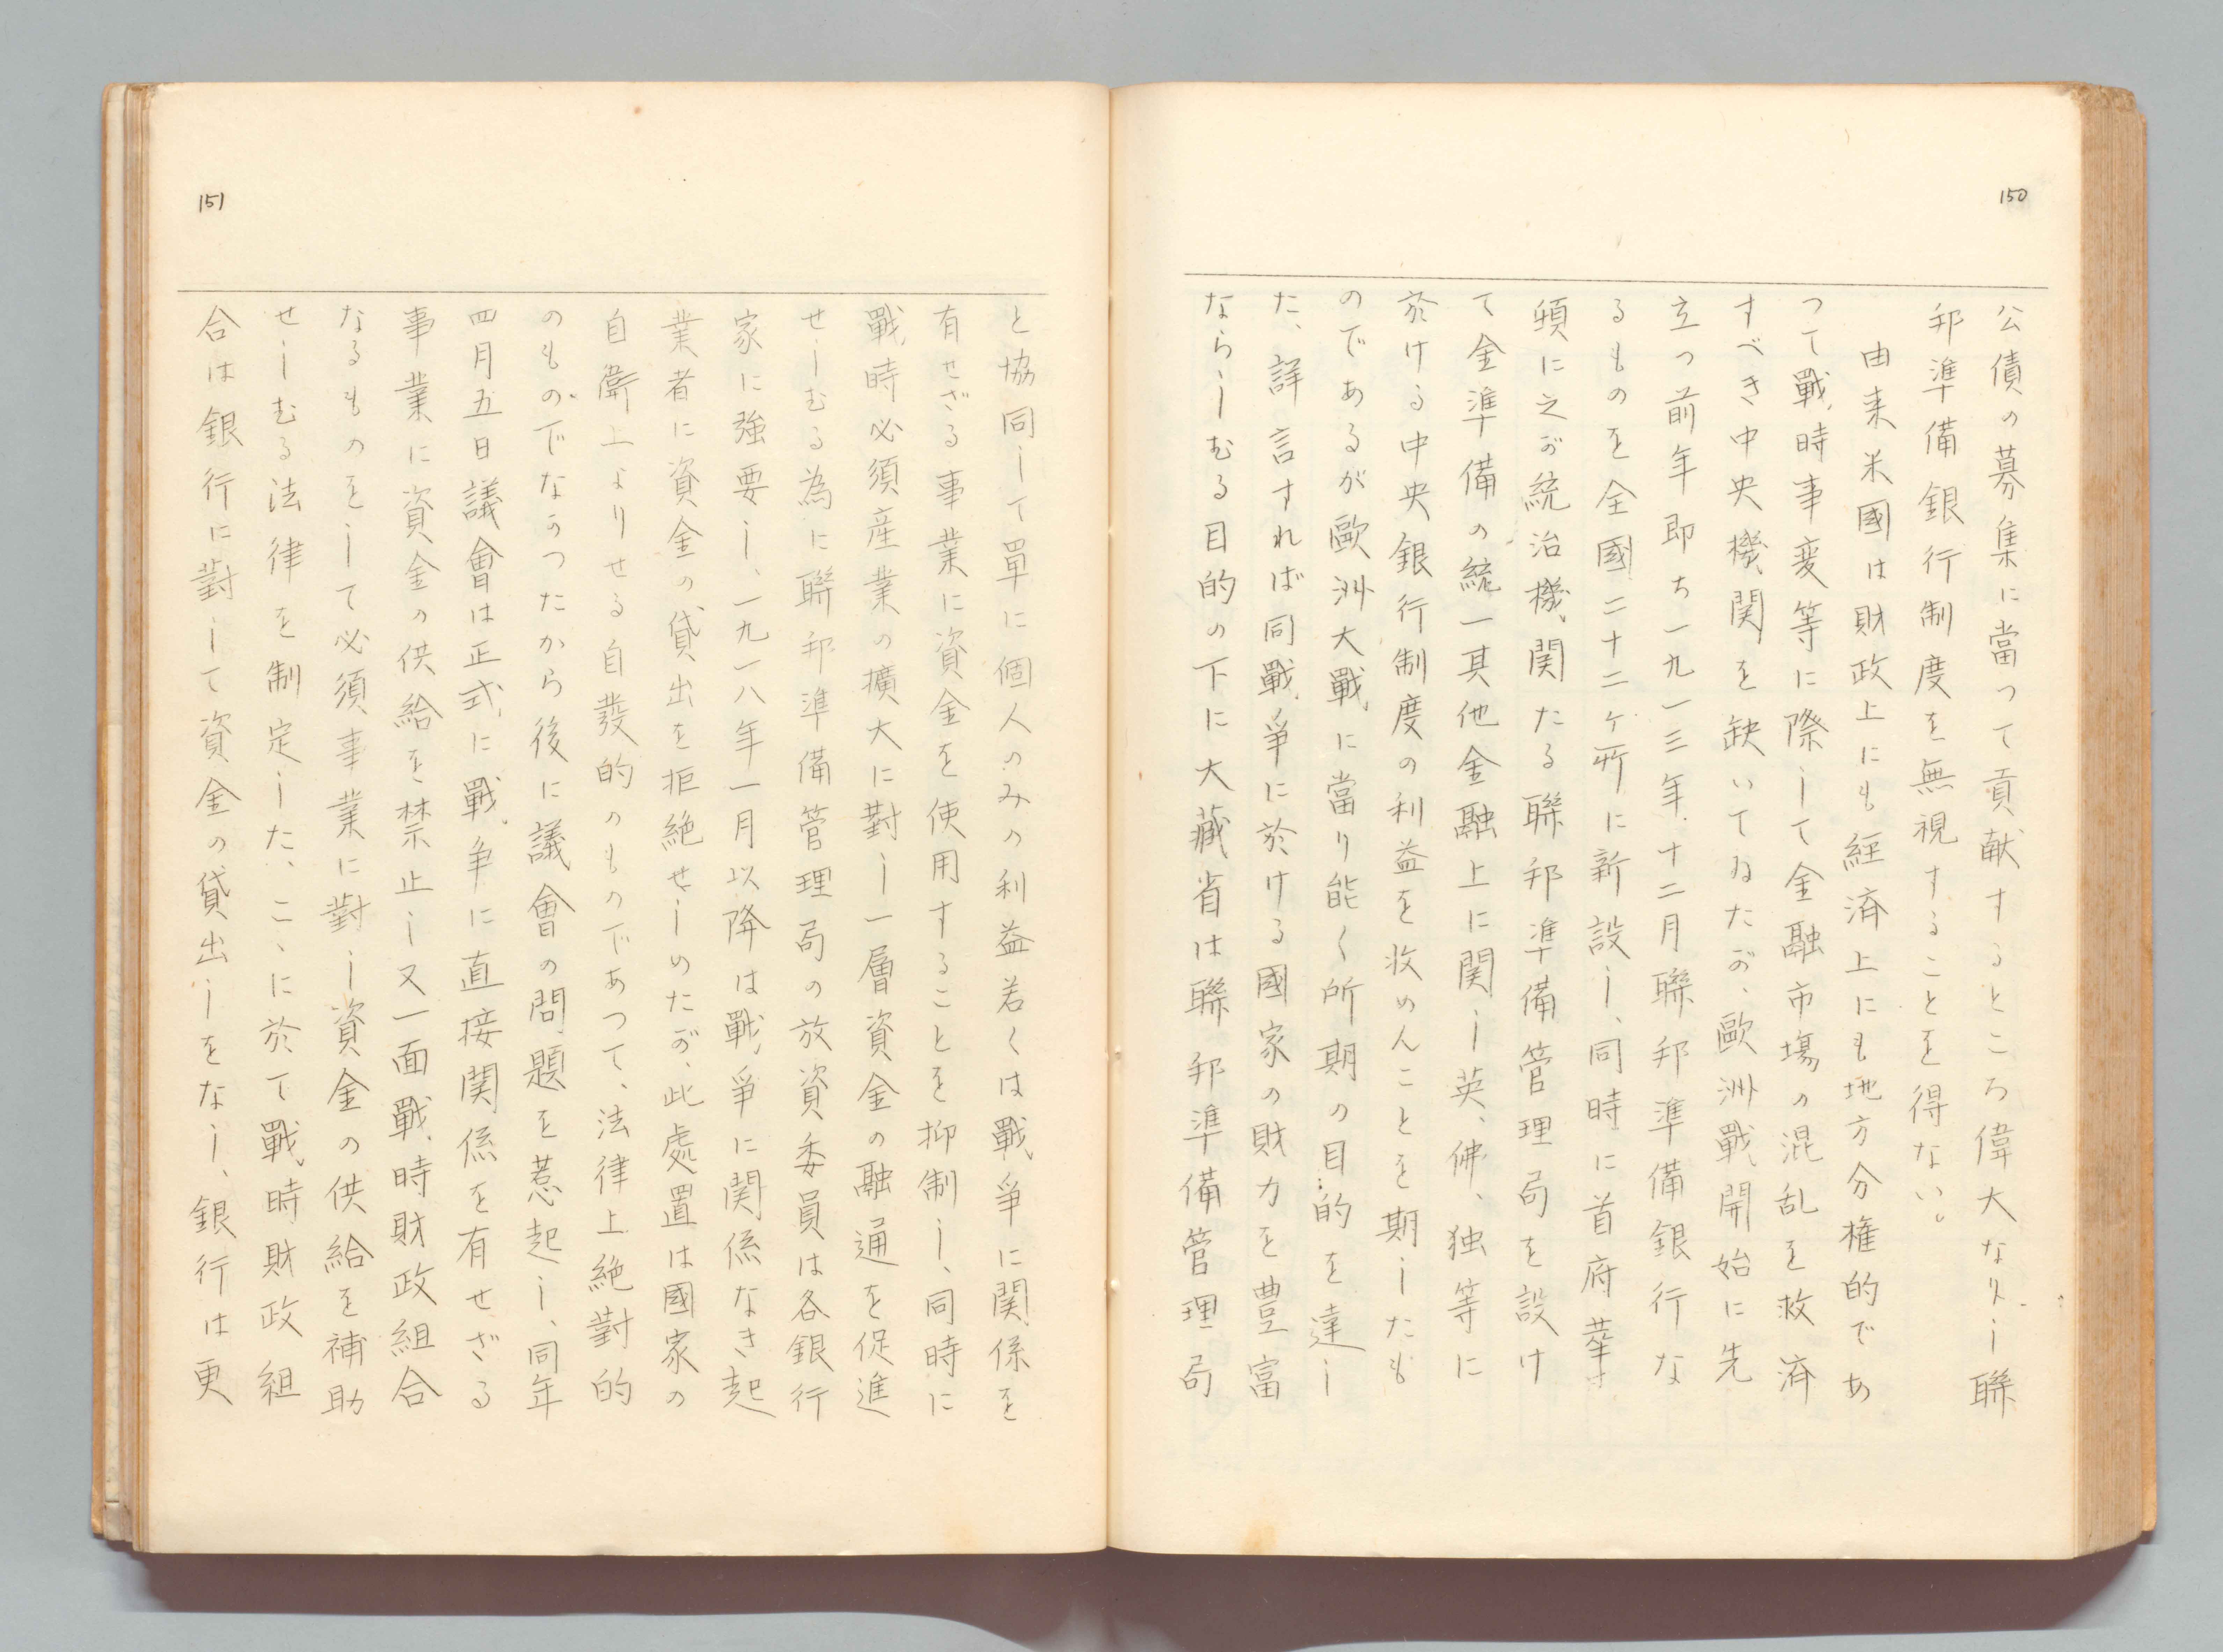 150
公債の募集に當つて貢献するところ偉大なりし聯
邦準備銀行制度を無視することを得ない。
由来米國は財政上にも経済上にも地方分権的であ
つて戰時事変等に際して金融市場の混乱を救済
すべき中央機関を缺いてゐたが、歐洲戰開始に先
立つ前年即ち一九一三年十二月聯邦準備銀行な
るものを全國二十二ヶ所に新設し、同時に首府華
頓に之が統治機関たる聯邦準備管理局を設け
て金準備の統一其他金融上に関し英、佛、独等に
於ける中央銀行制度の利益を收めんことを期したも
のであるが歐洲大戰に當り能く所期の目的を達し
た、詳言すれば同戰爭に於ける國家の財力を豊富
ならしむる目的の下に大藏省は聯邦準備管理局
151
と協同して單に個人のみの利益若くは戰爭に関係を
有せざる事業に資金を使用することを抑制し、同時に
戰時必須産業の擴大に對し一層資金の融通を促進
せしむる為に聯邦準備管理局の放資委員は各銀行
家に強要し、一九一八年一月以降は戰爭に関係なき起
業者に資金の貸出を拒絶せしめたが、此處置は國家の
自衛上よりせる自發的のものであつて、法律上絶對的
のものでなかつたから後に議會の問題を惹起し、同年
四月五日議會は正式に戰争に直接関係を有せざる
事業に資金の供給を禁止し又一面戰時財政組合
なるものをして必須事業に對し資金の供給を補助
せしむる法律を制定した、こゝに於て戰時財政組
合は銀行に對して資金の貸出しをなし、銀行は更